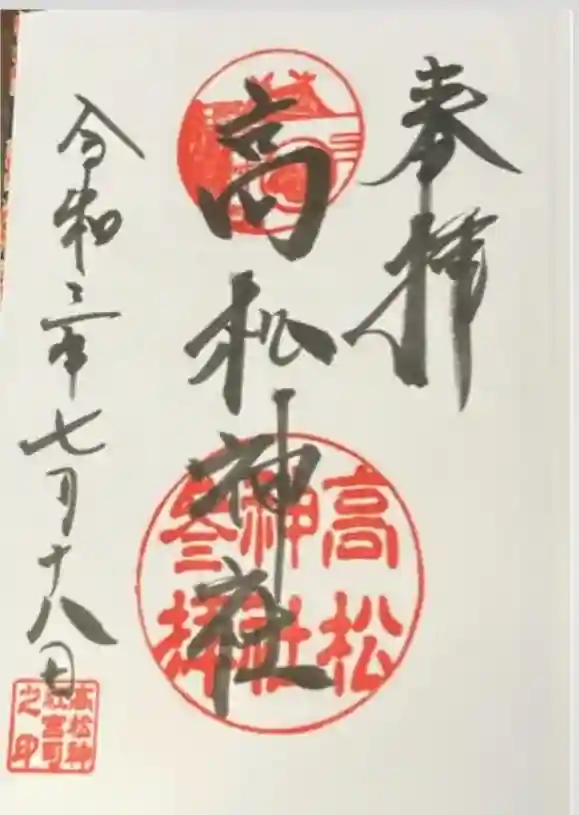 奉拝
高松神社
高松
神社
参拝
令和三年七月十八日
高松神
社宮司
之印